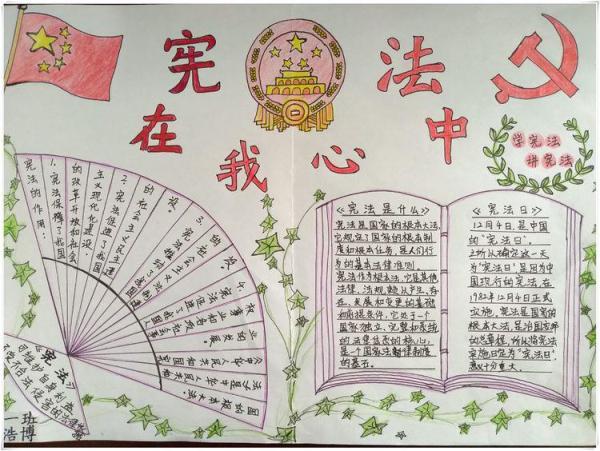 宪法
在我心中
学宪法
讲宪法
《宪法是什么》
宪法是国家的根本大法,
它规定了国家的根本制
度和根本任务,是人们行
为的基本法律准则。
宪法作为根本法,它是其他
法律、法规赖以产生、存
在、发展和变更的基础
和前提条件,它处于一个
国家独立、完整和系统
的法律体系的核心,
是一个国家法制律制度
的基石。
《宪法日》
12月4日,是中国
的“宪法日”。
之所以确定这一天
为“宪法日”,是因为中
国现行的宪法,在
1982年12月4日正式
实施,宪法是国家的
根本大法,是治国安邦
的总章程,所以将宪法
实施日定为“宪法日”,
意义十分重大。
宪法的作用:
1.宪法保障了我国
的改革开放和社会
主义现代化建设。
2.宪法促进了我国
的社会主义民主建
设。
3.宪法推动了我国
的社会主义法制
建设。
4.宪法促进了我国人
权事业和各项社会事
业的发展。
《中华人民共和国宪
法》是中华人民共和
国的根本大法。
《宪法》
一班
浩博